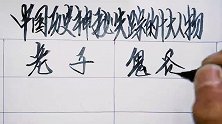 中国历史神秘失踪的十大人物
老子 鬼谷